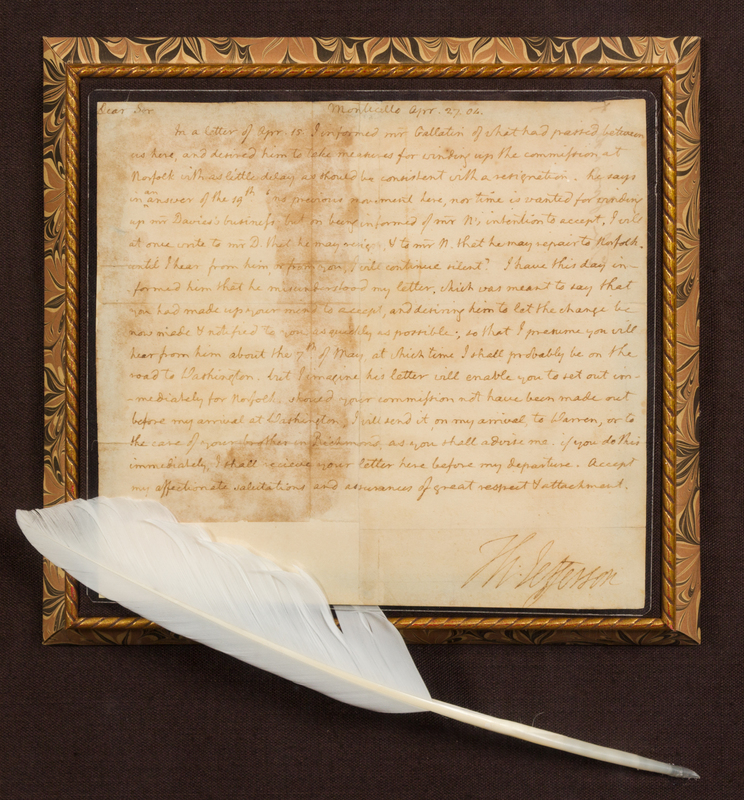 Dear Sir Monticello Apr. 27. 04.
In a letter of Apr. 15. I informed mr Gallatin of what had passed between
us here, and desired him to take measures for winding up the commission at
Norfolk with as little delay as should be consistent with a resignation. he says
in an answer of the 19th 'no previous movement here, nor time is wanted for winding
up mr Davies's business; but on being informed of mr N's intention to accept, I will
at once write to mr D. that he may resign, & to mr N. that he may repair to Norfolk.
until I hear from him or from you, I will continue silent.' I have this day in-
-formed him that he misunderstood my letter, which was meant to say that
you had made up your mind to accept, and desiring him to let the change be
now made & notified to you as quickly as possible; so that I presume you will
hear from him about the 7th of May, at which time I shall probably be on the
road to Washington. but I imagine his letter will enable you to set out im-
-mediately for Norfolk. should your commission not have been made out
before my arrival at Washington, I will send it on my arrival, to Warren, or to
the care of your brother in Richmond, as you shall advise me. if you do this
immediately, I shall recieve your letter here before my departure. Accept
my affectionate salutations and assurances of great respect & attachment.
Th: Jefferson